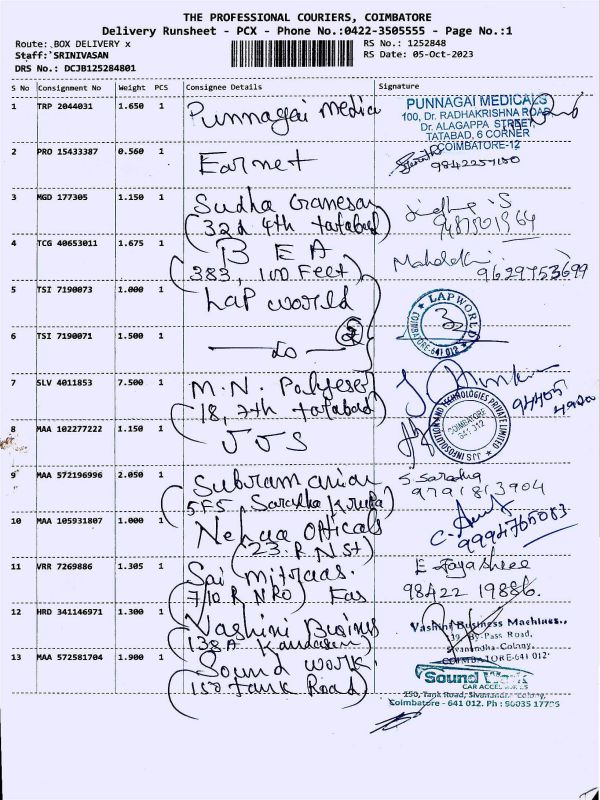 THE PROFESSIONAL COURIERS, COIMBATORE
Delivery Runsheet - PCX - Phone No.:0422-3505555 - Page No.:1
Route: BOX DELIVERY x
RS No.: 1252848
Staff: SRINIVASAN
RS Date: 05-Oct-2023
DRS No.: DCJB125284801
S No Consignment No Weight PCS Consignee Details Signature
1 TRP 2044031 1.650 1 Punnagai Media
PUNNAGAI MEDICALS
100, Dr. RADHAKRISHNA ROAD,
Dr. ALAGAPPA STREET,
TATABAD, 6 CORNER
COIMBATORE-12
2 PRO 15433387 0.560 1 Earnet
3 MGD 177305 1.150 1 Sudha Ganesan
(32d 4th tatabad)
4 TCG 40653011 1.675 1 B E A
9629753699
(383, 100 Feet)
5 TSI 7190073 1.000 1 Lap world
LAPWORLD
COIMBATORE-641 012
6 TSI 7190071 1.500 1 — do —
7 SLV 4011853 7.500 1 M.N.
(18, 7th tatabad)
8 MAA 102277222 1.150 1 JJS
JJS INFOSOLUTION AND TECHNOLOGIES PRIVATE LIMITED
COIMBATORE
641 012
9 MAA 572196996 2.050 1 Subramanian
9791813904
10 MAA 105931807 1.000 1 Opticals
(23. R N St)
9994765083
11 VRR 7269886 1.305 1 Sai
E Jayashree
98422 19886.
12 HRD 341146971 1.300 1 Vashini
Vashini Business Machines.,
39, By-Pass Road,
Sivanandha Colony,
COIMBATORE-641 012
13 MAA 572581704 1.900 1 Sound work
(150 tank Road)
Sound Work
CAR ACCESSORIES
150, Tank Road, Sivanandha Colony,
Coimbatore - 641 012. Ph : 90035 17795